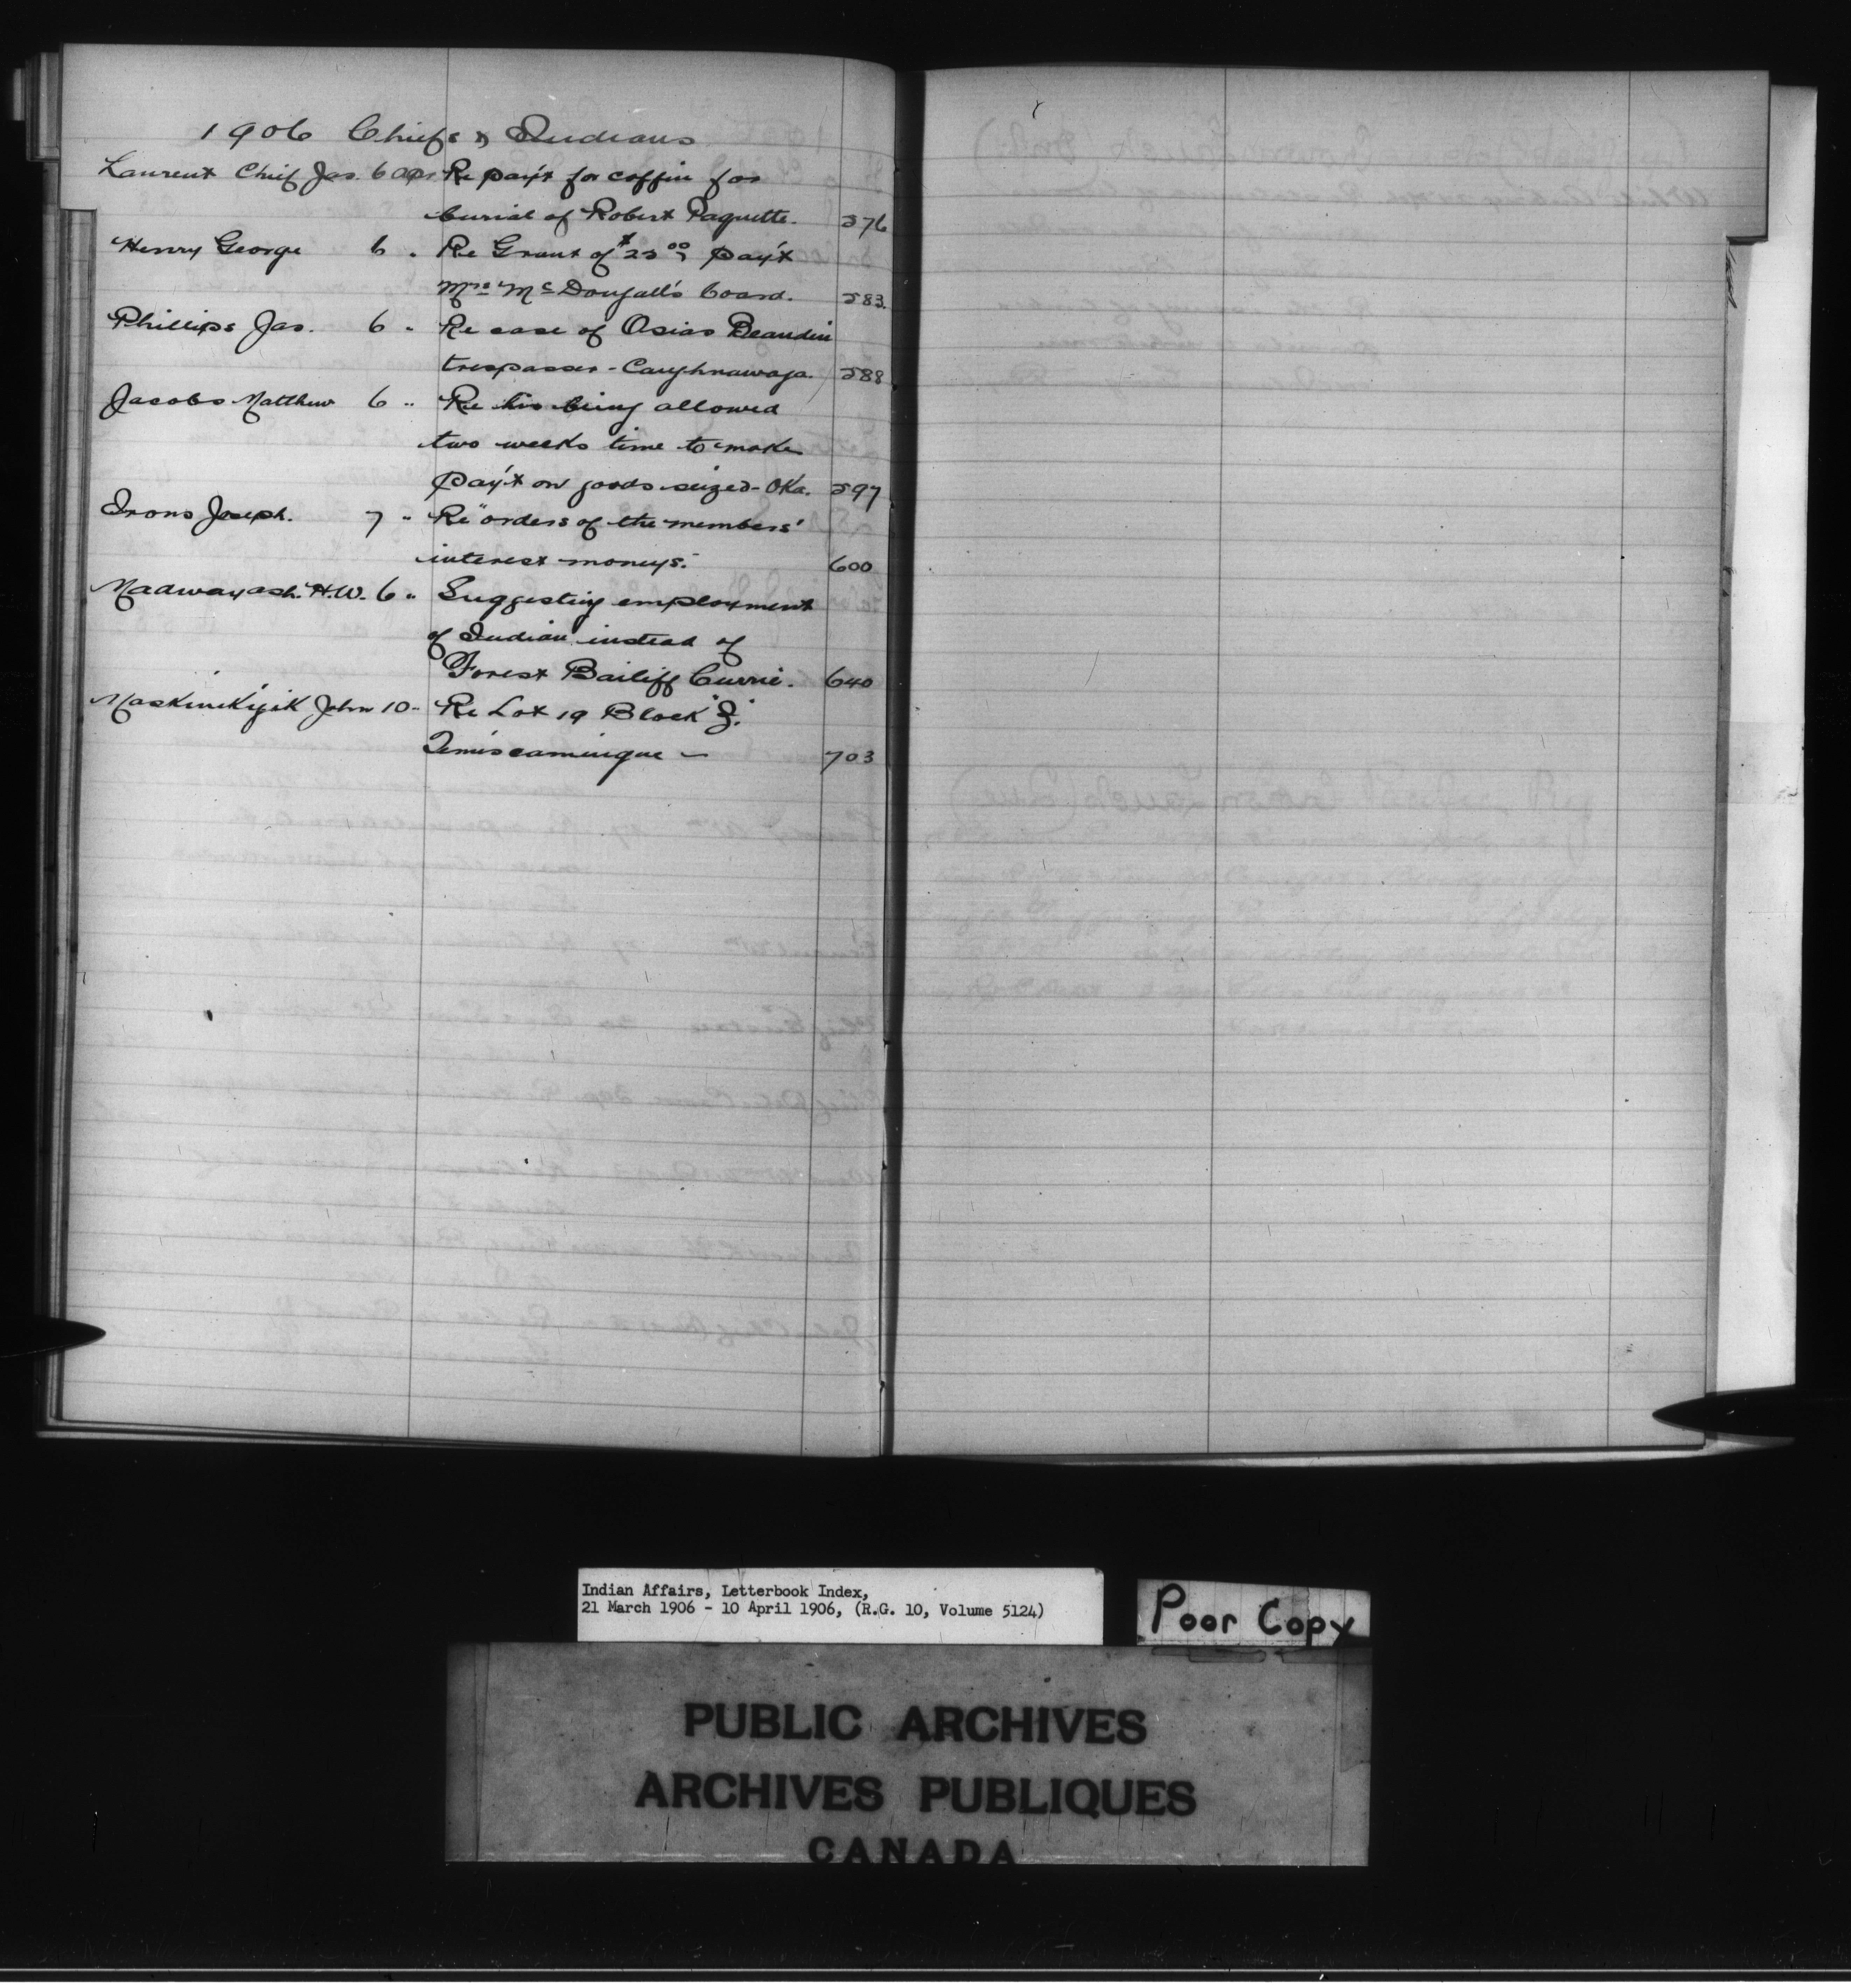 1906 Chiefs & Indians
Laurent Chief Jas. 6 Apr. Re pay't for coffin for
burial of Robert Paquette. 576
Henry George 6 " Re Grant of $25.00 pay't
Mrs McDougall's board. 583.
Phillips Jas. 6 " Re case of Osias Beaudin
trespasser - Caughnawaga. 588
Jacobs Matthew 6 " Re his being allowed
two weeks time to make
pay't on goods seized - Oka. 597
Irons Joseph. 7 " Re "orders of the members'
interest moneys." 600
Madwayash. H.W. 6 " Suggesting employment
of Indian instead of
Forest Bailiff Currie. 640
Maskinikijik John 10 - Re Lot 19 Block "J."
Temiscamingue - 703
Indian Affairs, Letterbook Index,
21 March 1906 - 10 April 1906, (R.G. 10, Volume 5124)
Poor Copy
PUBLIC ARCHIVES
ARCHIVES PUBLIQUES
CANADA